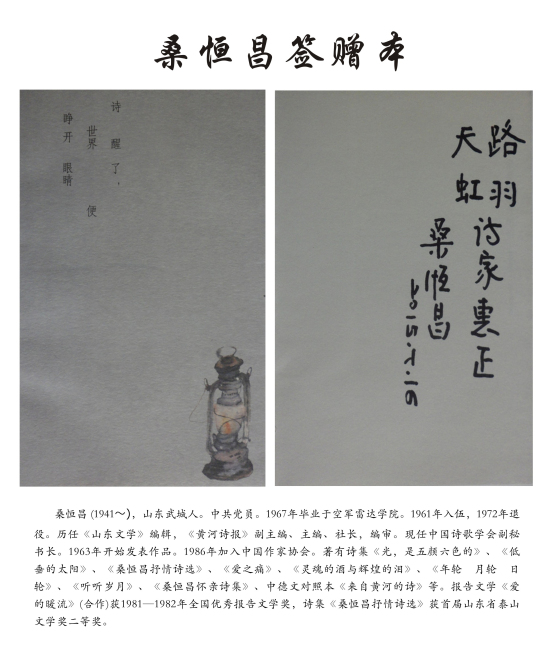 桑恒昌签赠本
诗 醒了，
世界 便
睁开 眼睛
路羽
天虹
诗家惠正
桑恒昌
桑恒昌 (1941～)，山东武城人。中共党员。1967年毕业于空军雷达学院。1961年入伍，1972年退
役。历任《山东文学》编辑，《黄河诗报》副主编、主编、社长，编审。现任中国诗歌学会副秘
书长。1963年开始发表作品。1986年加入中国作家协会。著有诗集《光，是五颜六色的》、《低
垂的太阳》、《桑恒昌抒情诗选》、《爱之痛》、《灵魂的酒与辉煌的泪》、《年轮 月轮 日
轮》、《听听岁月》、《桑恒昌怀亲诗集》、中德文对照本《来自黄河的诗》等。报告文学《爱
的暖流》(合作)获1981—1982年全国优秀报告文学奖，诗集《桑恒昌抒情诗选》获首届山东省泰山
文学奖二等奖。